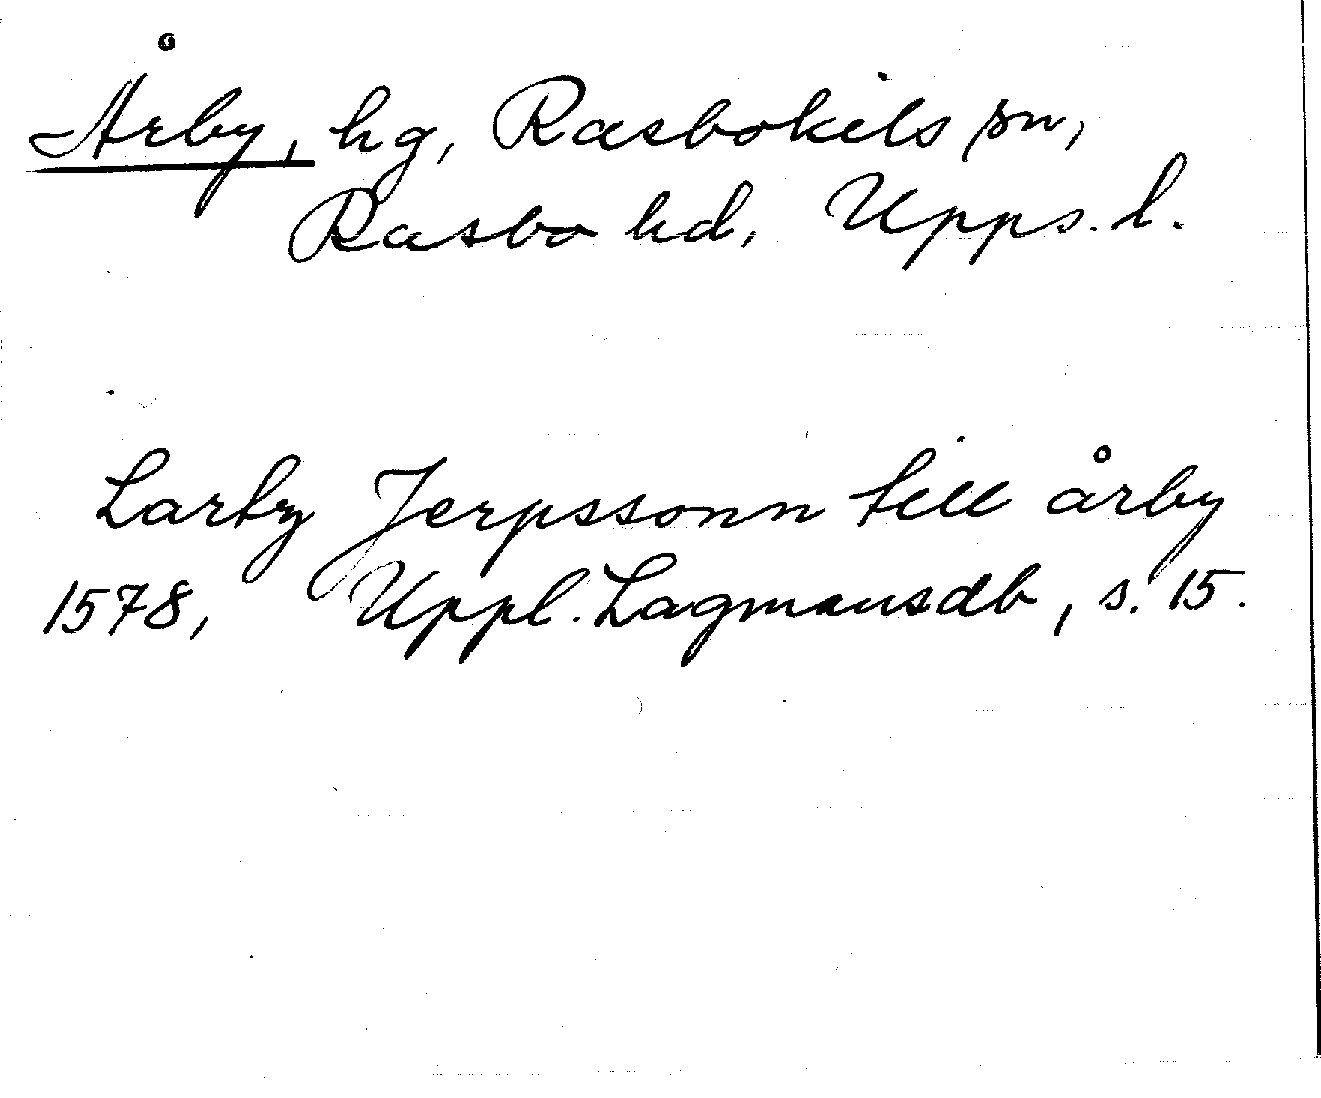 Årby, hg, Rasbokils sn,
Rasbo hd, Upps. l.
Jerpssonn till årby
1578, Uppl. Lagmansdb, s. 15.